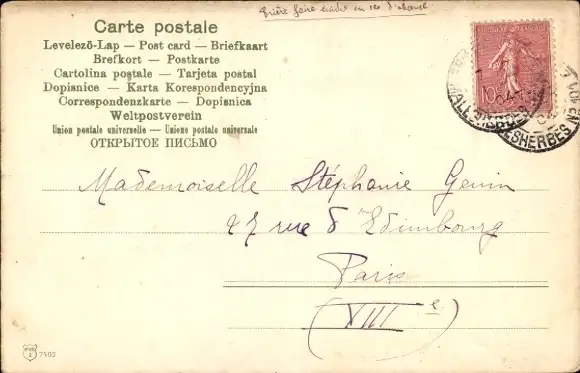 Prière faire suivre en cas d'absence
Carte postale
Levelező-Lap — Post card — Briefkaart
Brefkort — Postkarte
Cartolina postale — Tarjeta postal
Dopisnice — Karta Korespondencyjna
Correspondenzkarte — Dopisnica
Weltpostverein
Union postale universelle — Unione postale universale
ОТКРЫТОЕ ПИСЬМО
10
MALESHERBES
MALESHERBES
Mademoiselle Stéphanie Genin
47 rue d'Edimbourg
Paris
(VIIIe)
7402